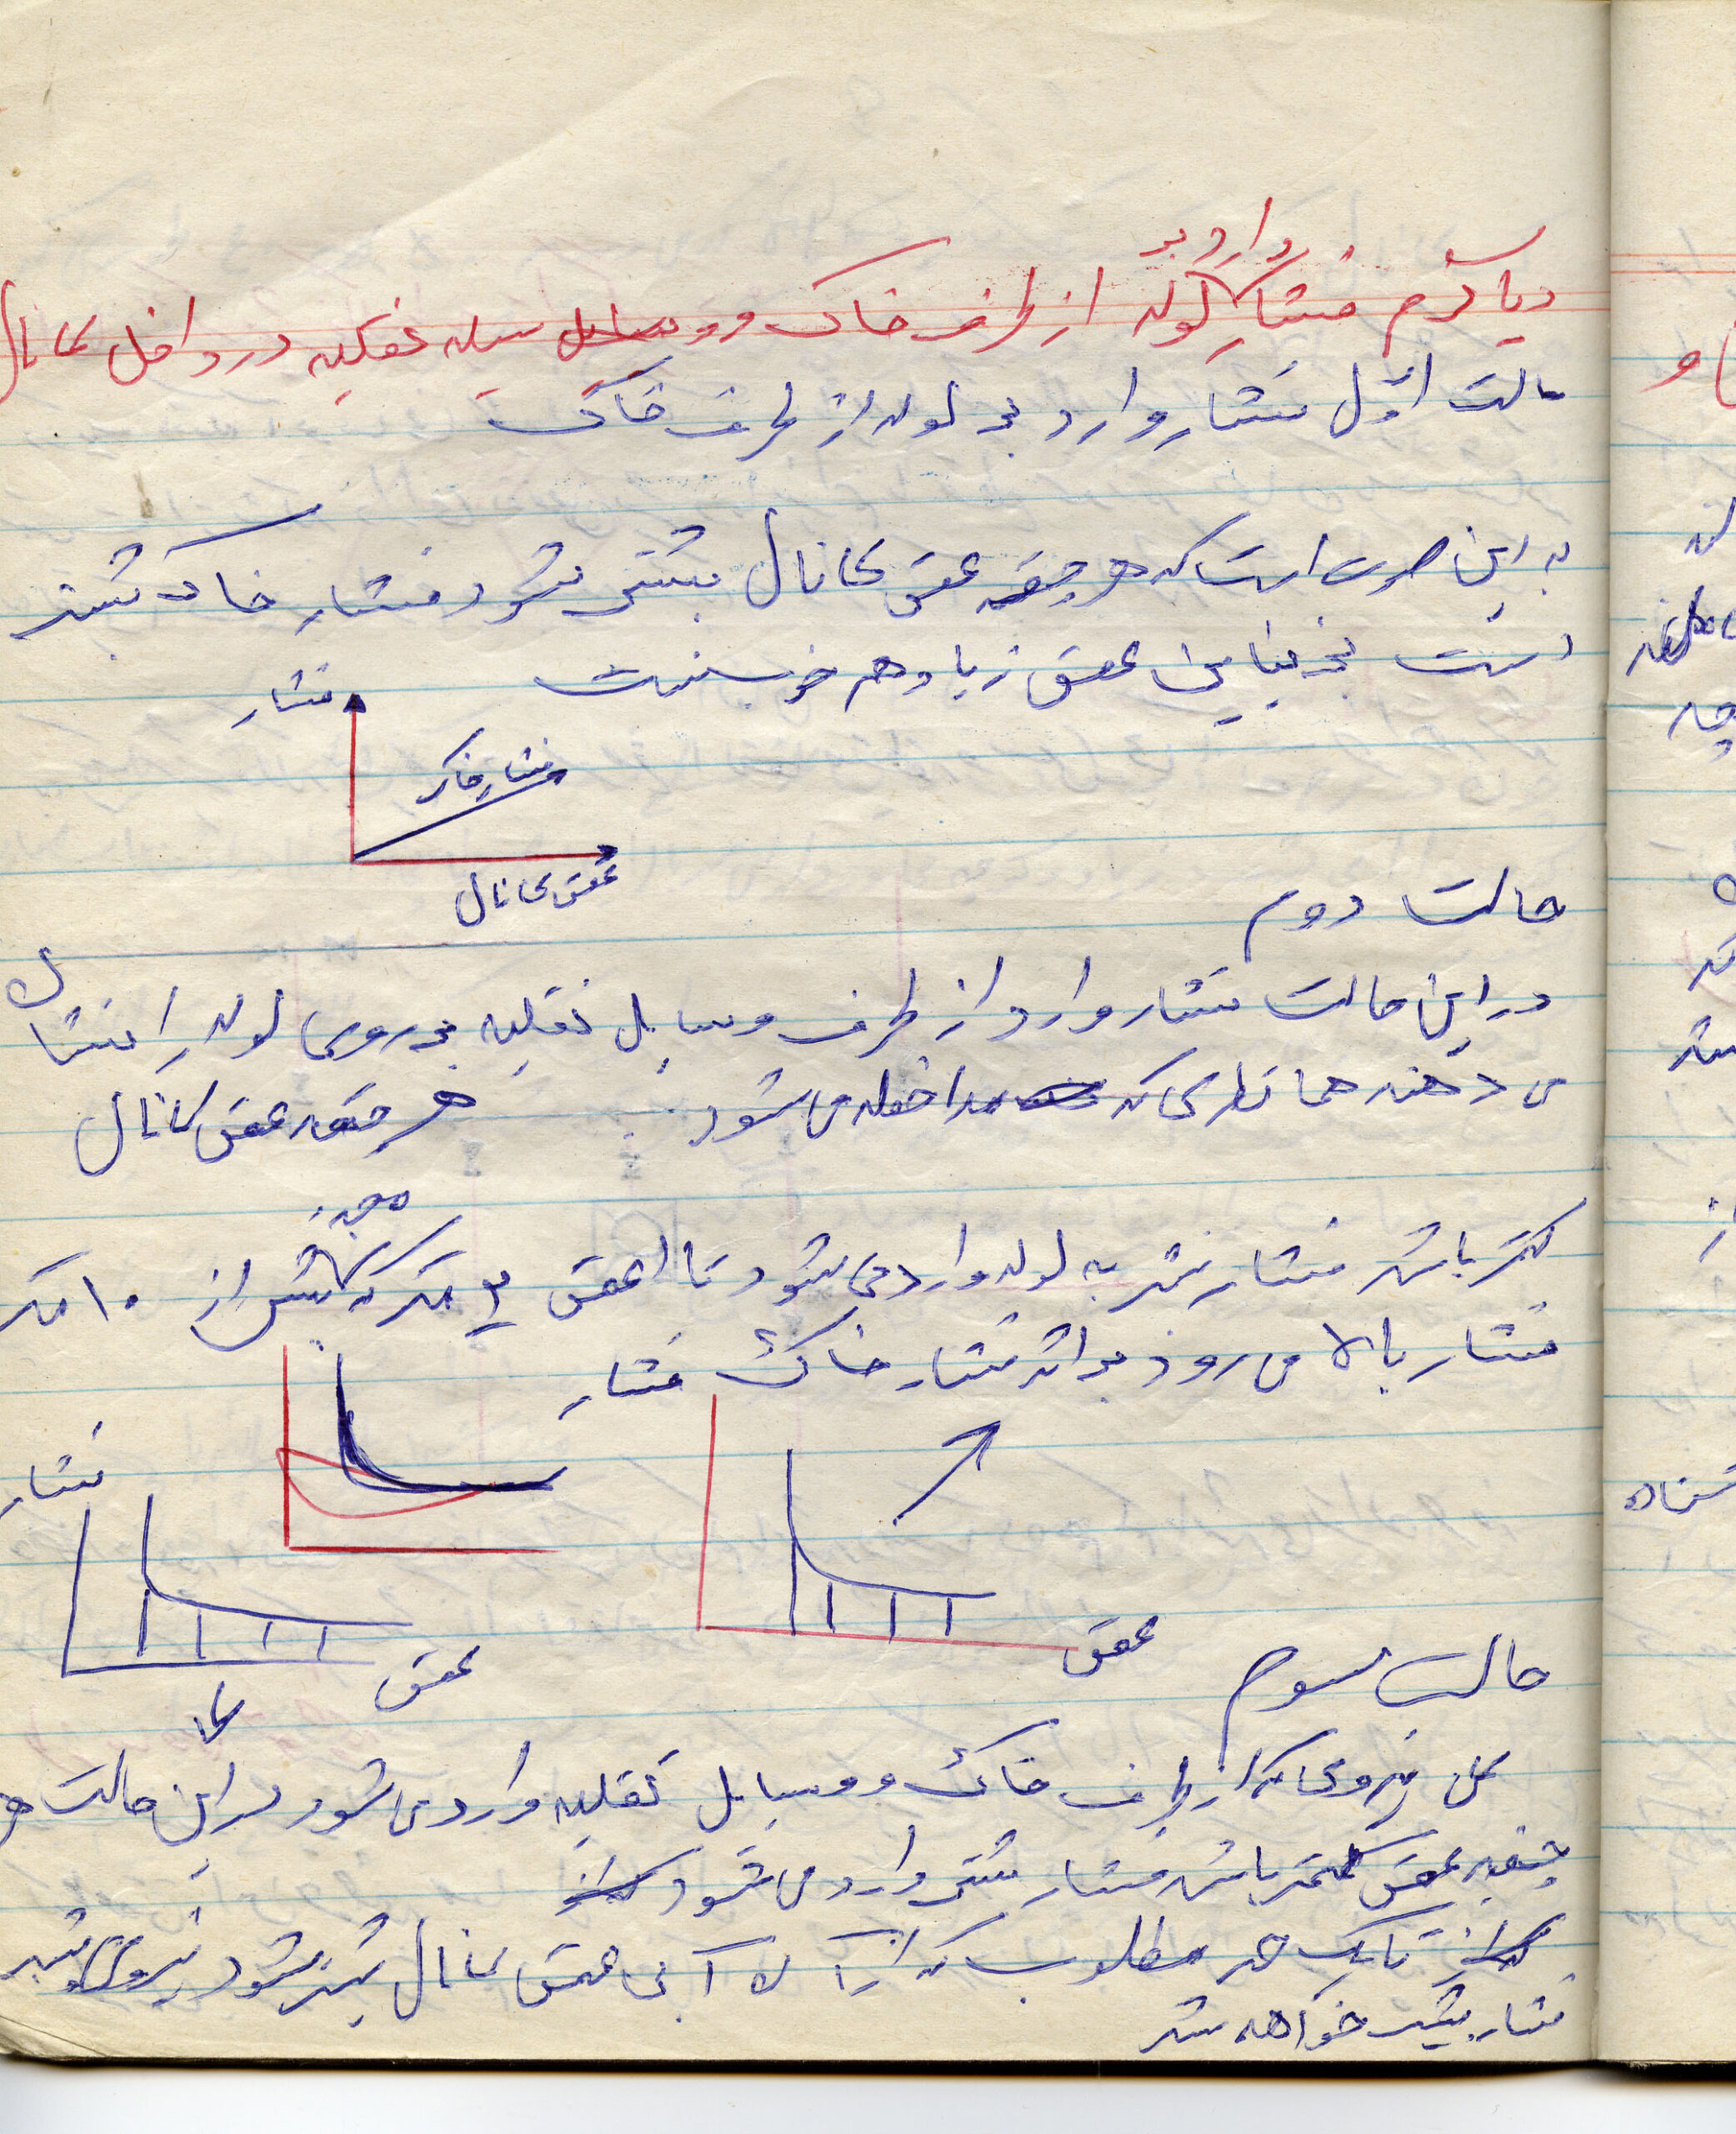 وارد بر
دیاگرم فشار لوله از طرف خاک و وسیله نقلیه در داخل کانال
حالت اول فشار وارد بر لوله از طرف خاک
به این صورت است که هر چقدر عمق کانال بیشتر شود فشار خاک بیشتر
است عمق زیاد هم خوب نیست
فشار
فشار خاک
عمق کانال
حالت دوم
در این حالت فشار وارد از طرف وسایل نقلیه بر روی لوله را نشان
می دهند همانطوری که ملاحظه می شود هر چقدر عمق کانال
کمتر باشد فشار بیشتر به لوله وارد می شود تا عمق متر که بیش از ۱۰ متر
فشار بالا می رود بر اثر فشار خاک فشار
فشار
عمق
عمق
حالت سوم
کل نیروی که از طرف خاک و وسایل نقلیه وارد می شود در این حالت هر
چقدر عمق کمتر باشد فشار بیشتر وارد می شود
تا یک حد مطلوب که از آن به عمق کانال بیشتر شود نیروی بیشتر
فشار بیشتر خواهد شد